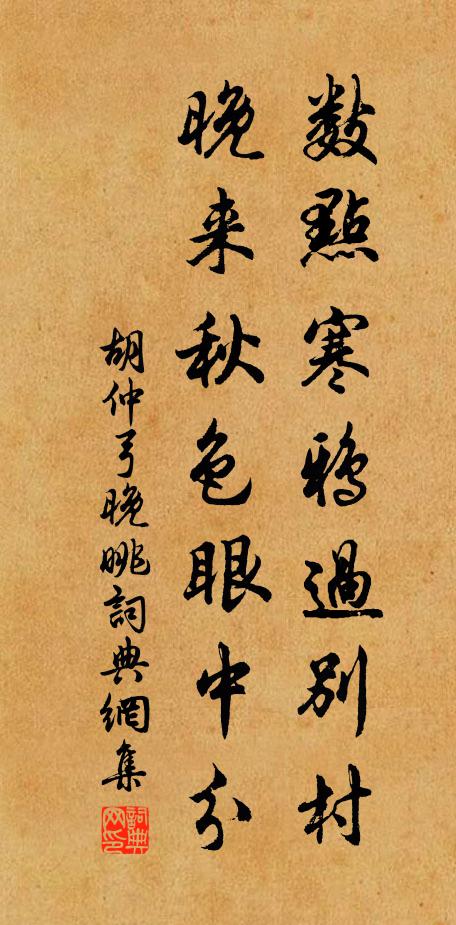 數點寒鴉過別村
晚来秋色眼中分
胡仲弓晚眺詞典網集
詞典网印